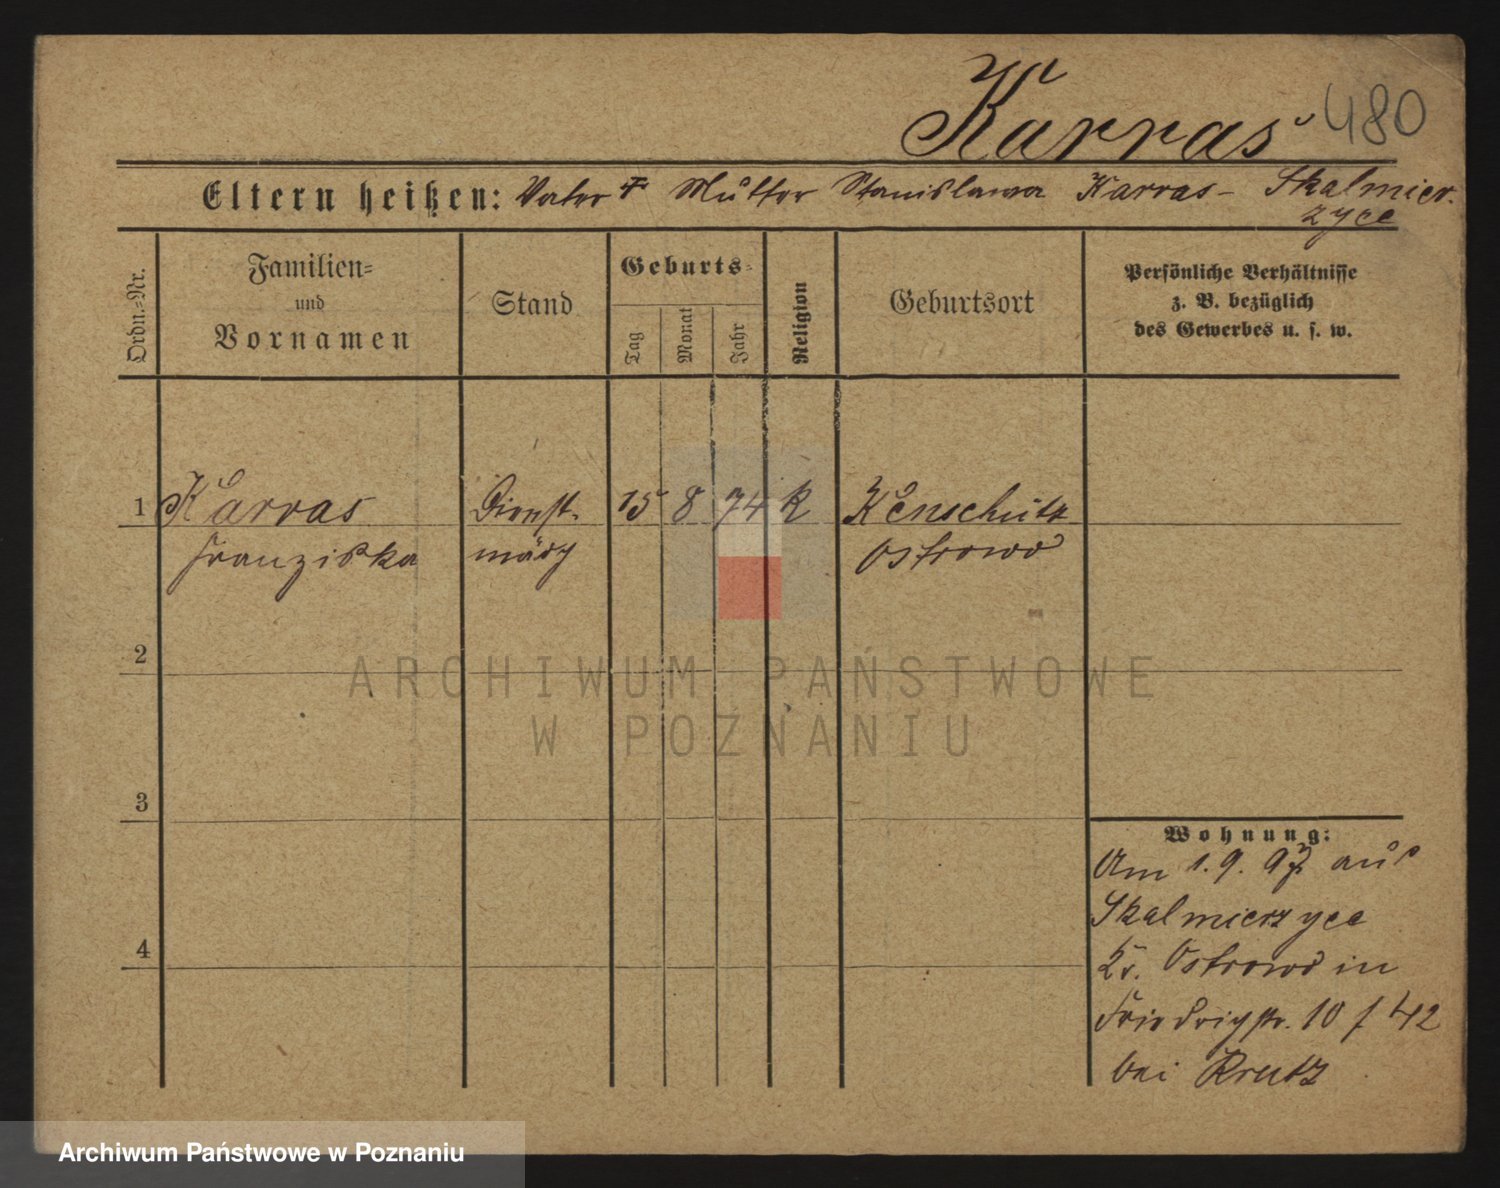 Karras 480
Eltern heißen: Vater † Mutter Stanislawa Karras - Skalmier-
zyce
Ordn.-Nr.
Familien-
und
Vornamen
Stand
Geburts-
Tag
Monat
Jahr
Religion
Geburtsort
Persönliche Verhältnisse
z. B. bezüglich
des Gewerbes u. s. w.
1 Karras Dienst- 15 8 74 K Wenschütz
Franziska mädch Ostrowo
2
3
4
Wohnung:
Am 1. 9. 97 aus
Skalmierzyce
Kr. Ostrowo in
Friedrichstr. 10 f 42
bei Kreutz
ARCHIWUM PAŃSTWOWE
W POZNANIU
Archiwum Państwowe w Poznaniu